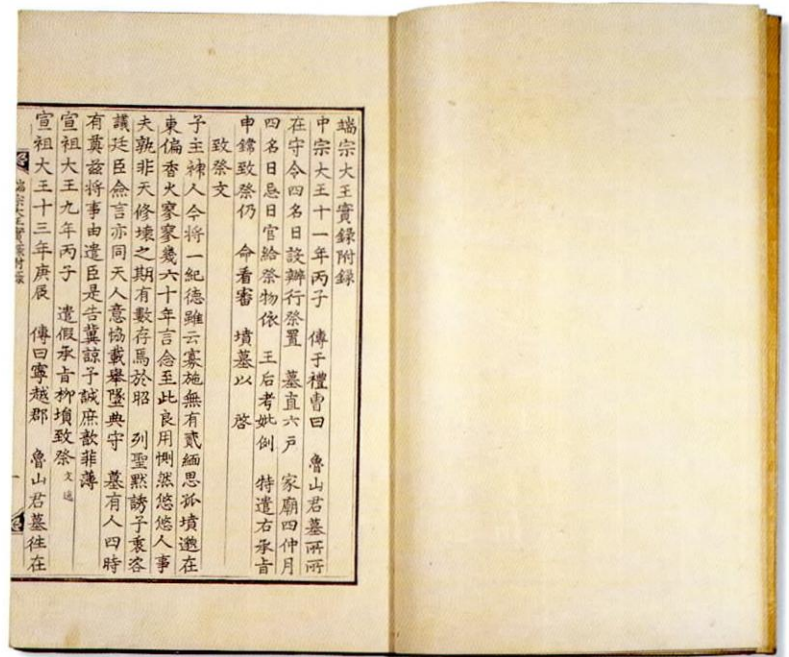 端宗大王實錄附錄
中宗大王十一年丙子 傳于禮曹曰 魯山君墓所所
在守令四名日設辦行祭置 墓直六戶 家廟四仲月
四名日忌日官給祭物依 王后考妣例 特遣右承旨
申鏛致祭仍 命看審 墳墓以 啓
致祭文
予主神人今將一紀德雖云寡施無有貳緬思孤墳邈在
東偏香火寥寥幾六十年言念至此良用惻然悠悠人事
夫孰非天修壞之期有數存焉於昭 列聖默誘予衷咨
議廷臣僉言亦同天人意協載擧墜典守 墓有人四時
有奠玆將事由遣臣是告冀諒予誠庶歆菲薄
宣祖大王九年丙子 遣假承旨柳塤致祭 文逸
宣祖大王十三年庚辰 傳曰寧越郡 魯山君墓徃在
端宗大王實錄附錄 一